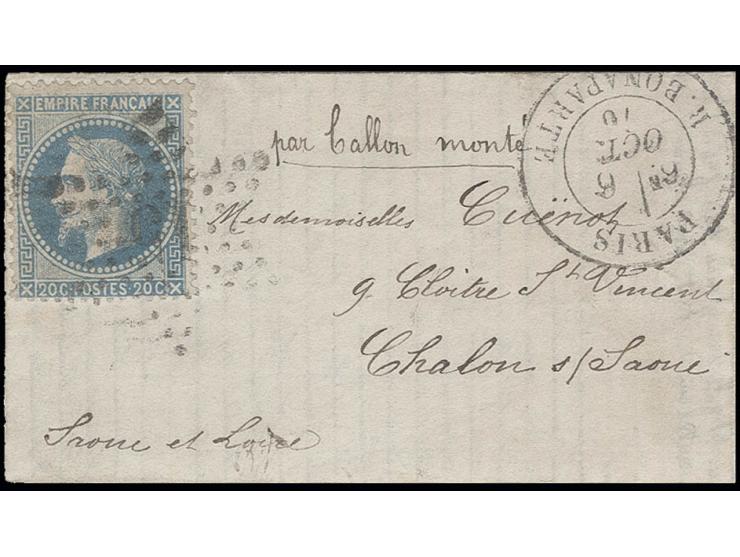 EMPIRE FRANÇAIS
20 C POSTES 20 C
par ballon monté
PARIS
R. BONAPARTE
6E
6
OCT.
70
Mesdemoiselles Cuënot
9 Cloitre St Vincent
Chalon s/Saone
Saone et Loire